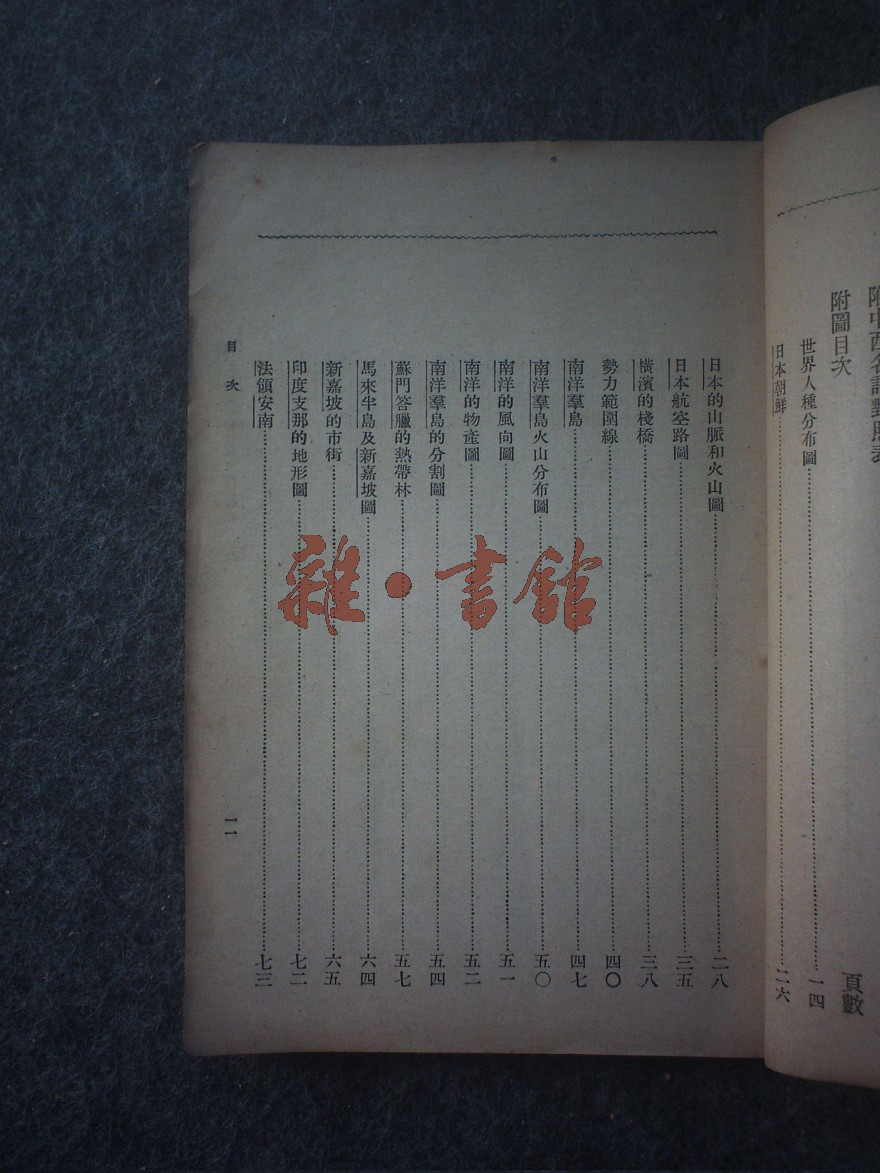 附中西名詞對照表
附圖目次 頁數
世界人種分布圖 一四
日本朝鮮 二六
日本的山脈和火山圖 二八
日本航空路圖 三五
橫濱的棧橋 三八
勢力範圍線 四〇
南洋羣島 四七
南洋羣島火山分布圖 五〇
南洋的風向圖 五一
南洋的物產圖 五二
南洋羣島的分割圖 五四
蘇門答臘的熱帶林 五七
馬來半島及新嘉坡圖 六四
新嘉坡的市街 六五
印度支那的地形圖 七二
法領安南 七三
目次 一一
雜·書館